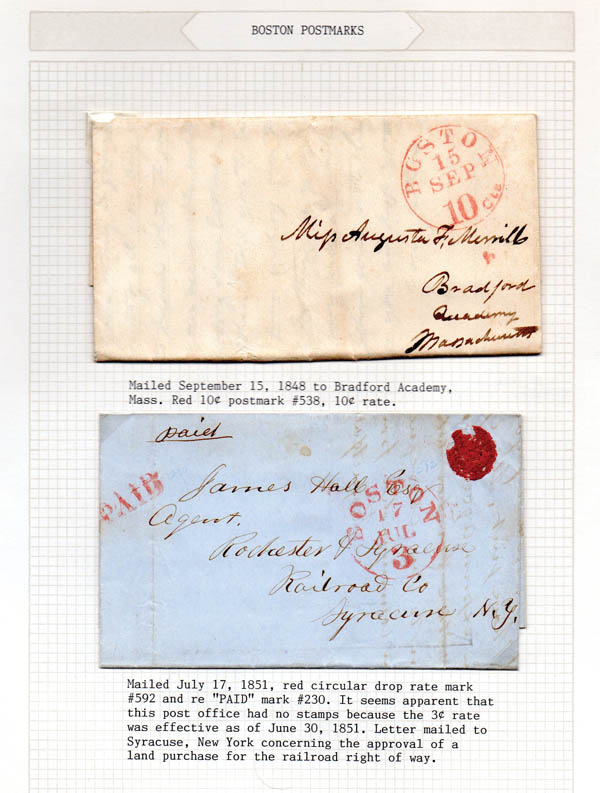 BOSTON POSTMARKS
BOSTON
15
SEP
10 cts
Miss Augusta F. Merrill
Bradford
Academy
Massachusetts
Mailed September 15, 1848 to Bradford Academy,
Mass. Red 10¢ postmark #538, 10¢ rate.
paid
PAID
James Hall Esq
Agent.
BOSTON
17
JUL
3
Rochester & Syracuse
Railroad Co
Syracuse N.Y.
Mailed July 17, 1851, red circular drop rate mark
#592 and re "PAID" mark #230. It seems apparent that
this post office had no stamps because the 3¢ rate
was effective as of June 30, 1851. Letter mailed to
Syracuse, New York concerning the approval of a
land purchase for the railroad right of way.